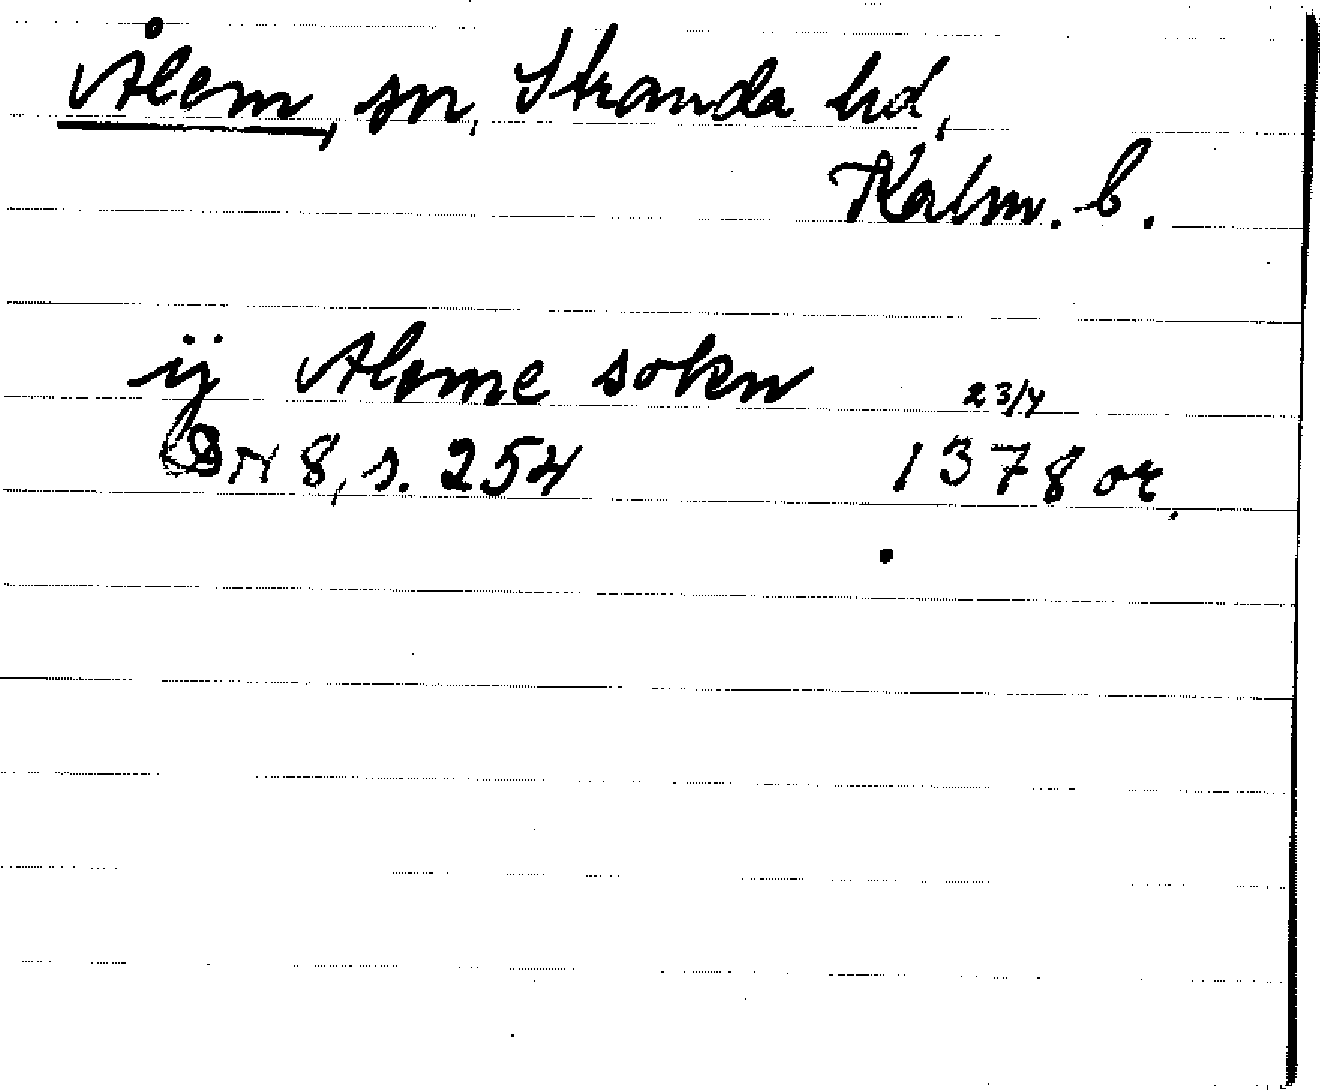 Ålem, sn, Stranda hd,
Kalm. l.
ij Aleme sokn 23/4
DN 8, s. 254 1378 or.